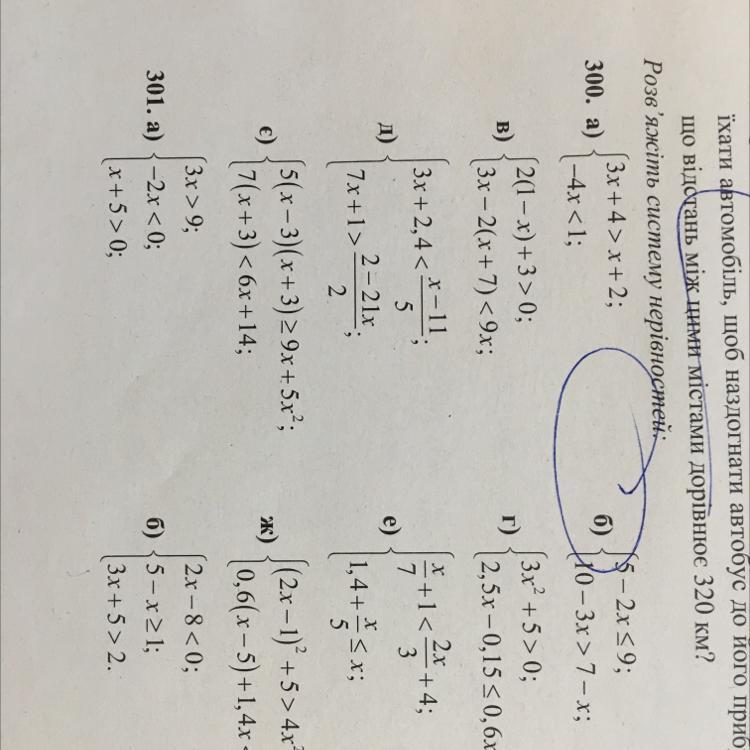 їхати автомобіль, щоб наздогнати автобус до його
що відстань між цими містами дорівнює 320 км?
Розв'яжіть систему нерівностей:
300. а) { 3x + 4 > x + 2; −4x < 1;
б) { 5 − 2x ≤ 9; 10 − 3x > 7 − x;
в) { 2(1 − x) + 3 > 0; 3x − 2(x + 7) < 9x;
г) { 3x² + 5 > 0; 2,5x − 0,15 ≤ 0,6x
д) { 3x + 2,4 < (x − 11)/5; 7x + 1 > (2 − 21x)/2;
е) { x/7 + 1 < 2x/3 + 4; 1,4 + x/5 ≤ x;
є) { 5(x − 3)(x + 3) ≥ 9x + 5x²; 7(x + 3) < 6x + 14;
ж) { (2x − 1)² + 5 > 4x² 0,6(x − 5) + 1,4x <
301. а) { 3x > 9; −2x < 0; x + 5 > 0;
б) { 2x − 8 < 0; 5 − x ≥ 1; 3x + 5 > 2.